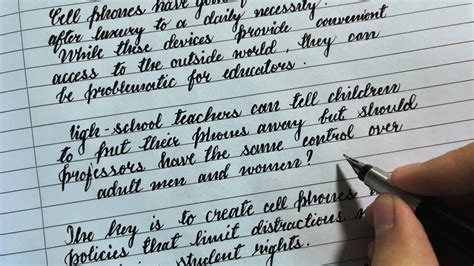 Cell phones have
after luxury to a daily necessity.
While these devices provide convenient
access to the outside world, they can
be problematic for educators.
High-school teachers can tell children
to put their phones away but should
professors have the same control over
adult men and women?
The key is to create cell phones
policies that limit distractions
student rights.